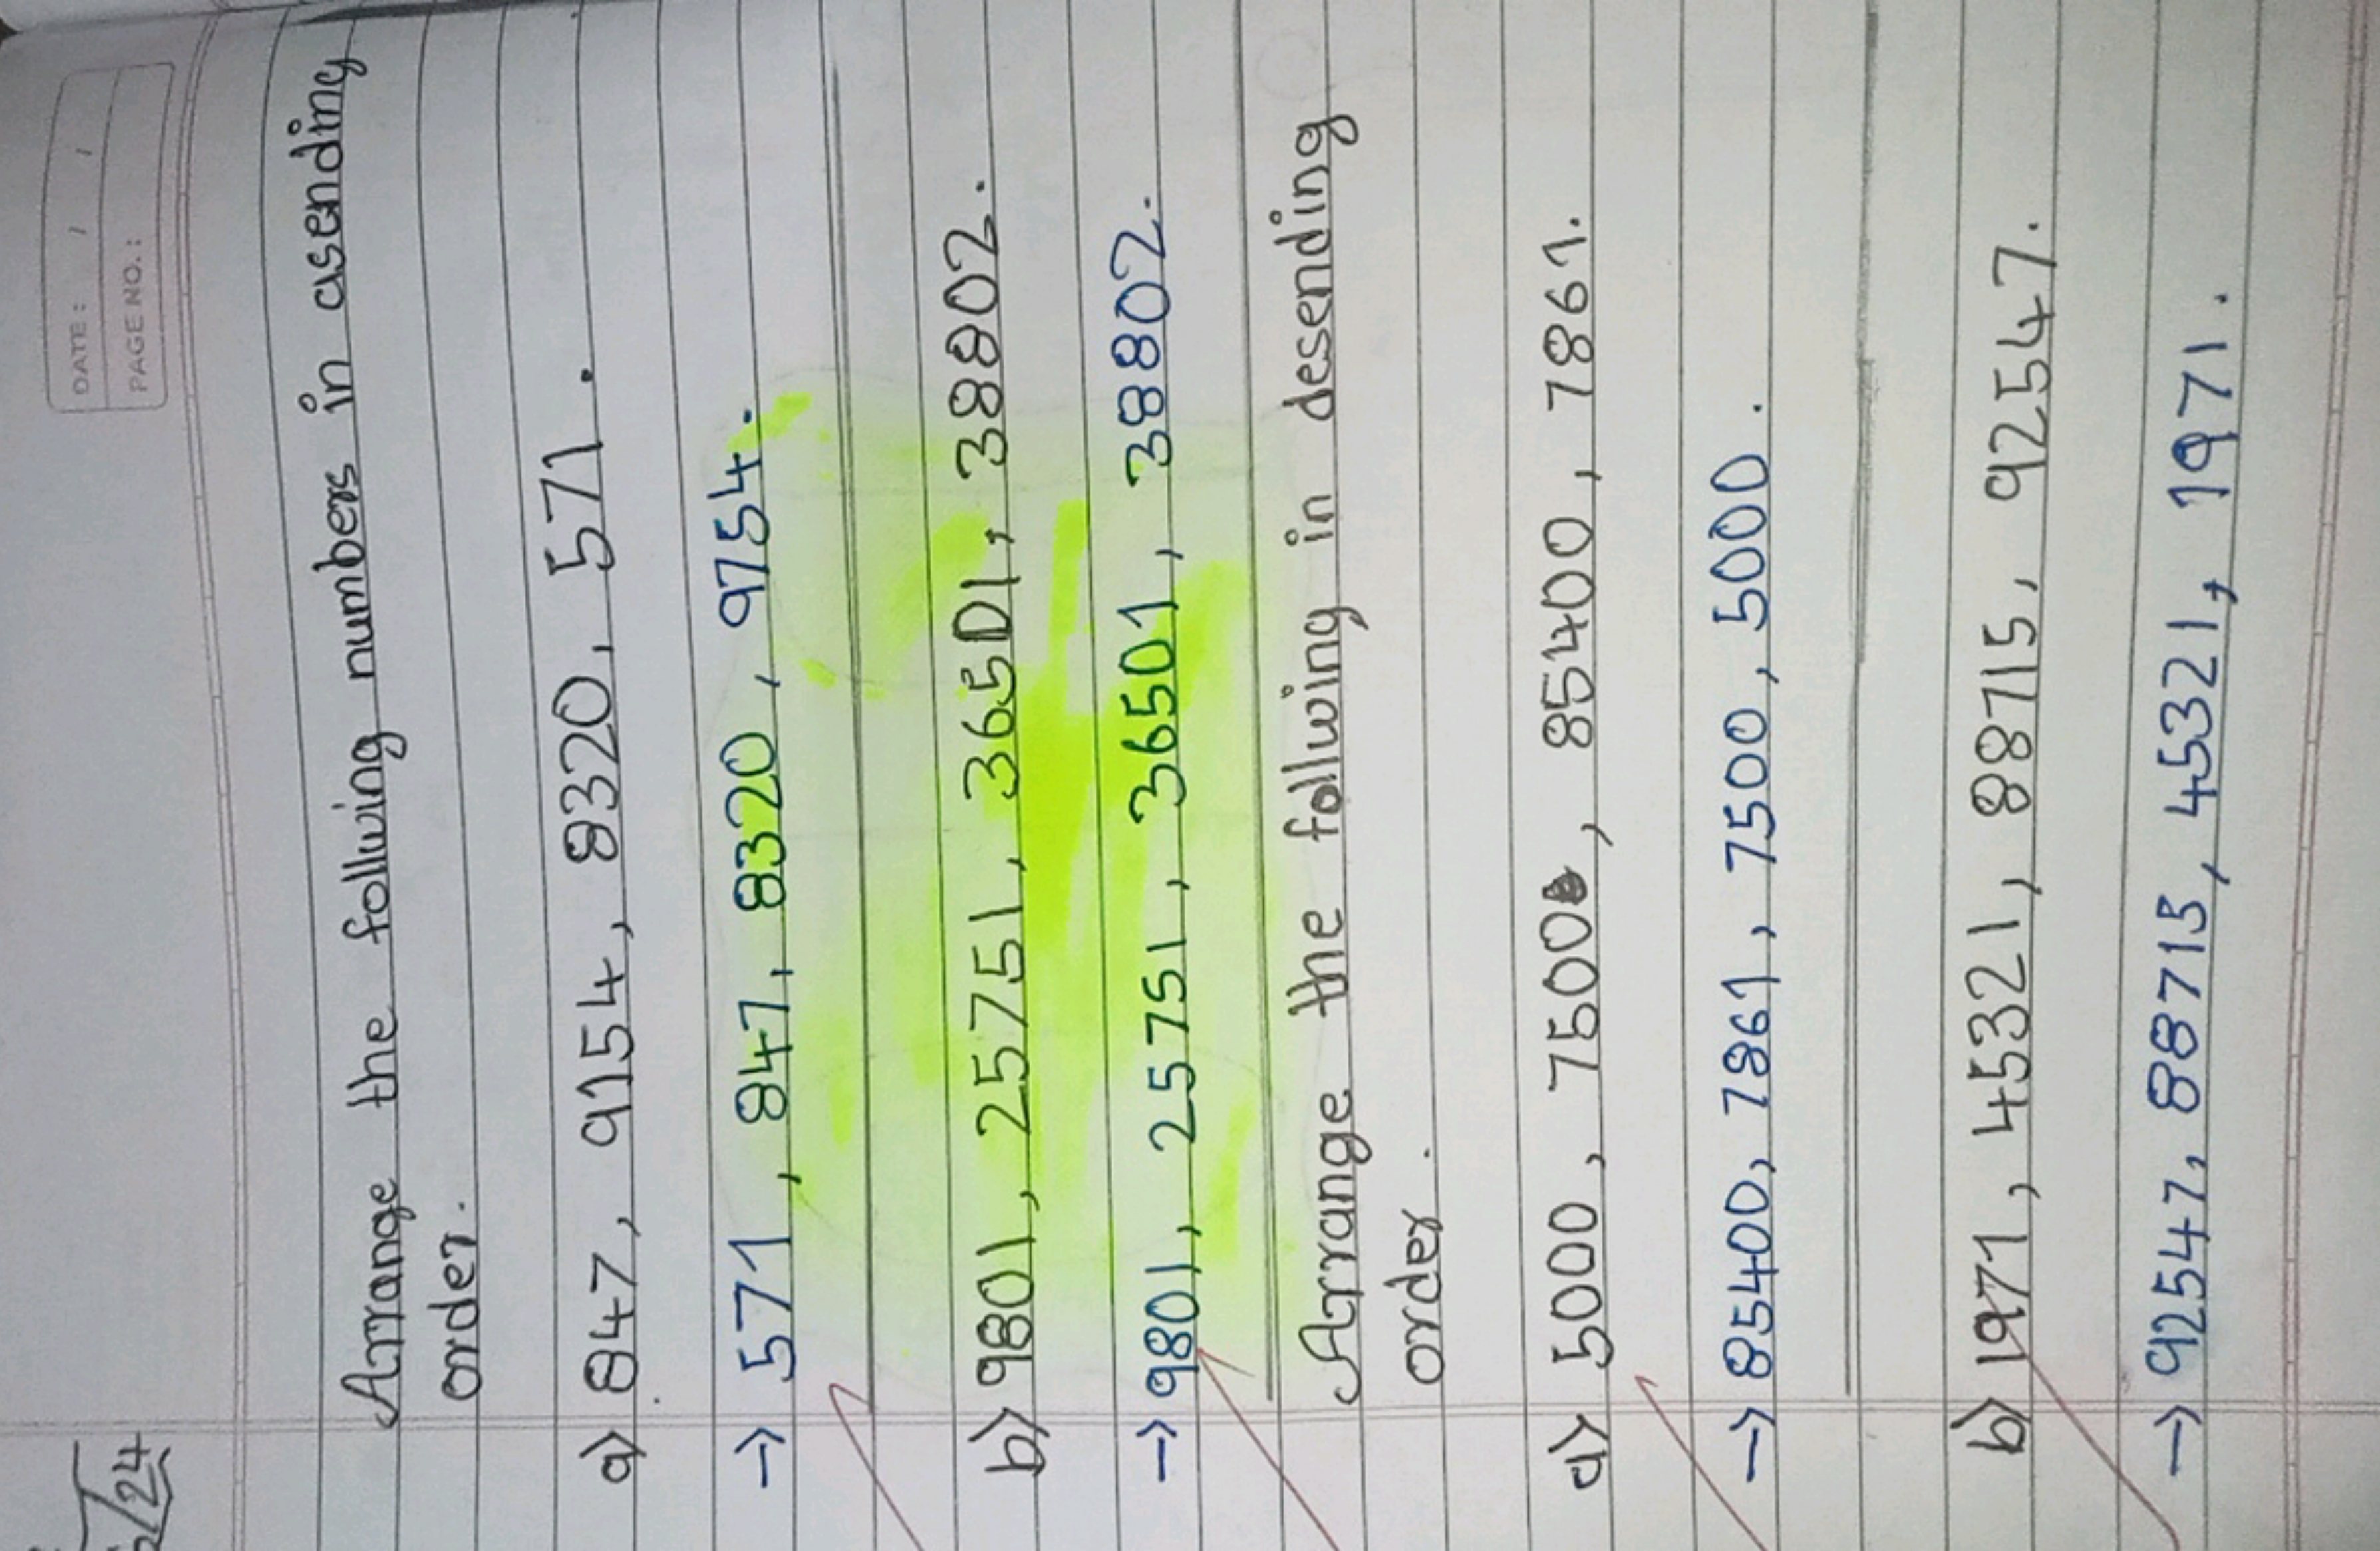 DATE: / /
PAGE NO.:
/24
Arrange the follwing numbers in asending
order.
a) 847, 9154, 8320, 571.
→ 571, 847, 8320, 9754.
b) 9801, 25751, 36501, 38802.
→ 9801, 25751, 36501, 38802.
Arrange the follwing in desending
order.
a) 5000, 7500, 85400, 7861.
→ 85400, 7861, 7500, 5000.
b) 1971, 45321, 88715, 92547.
→ 92547, 88715, 45321, 1971.